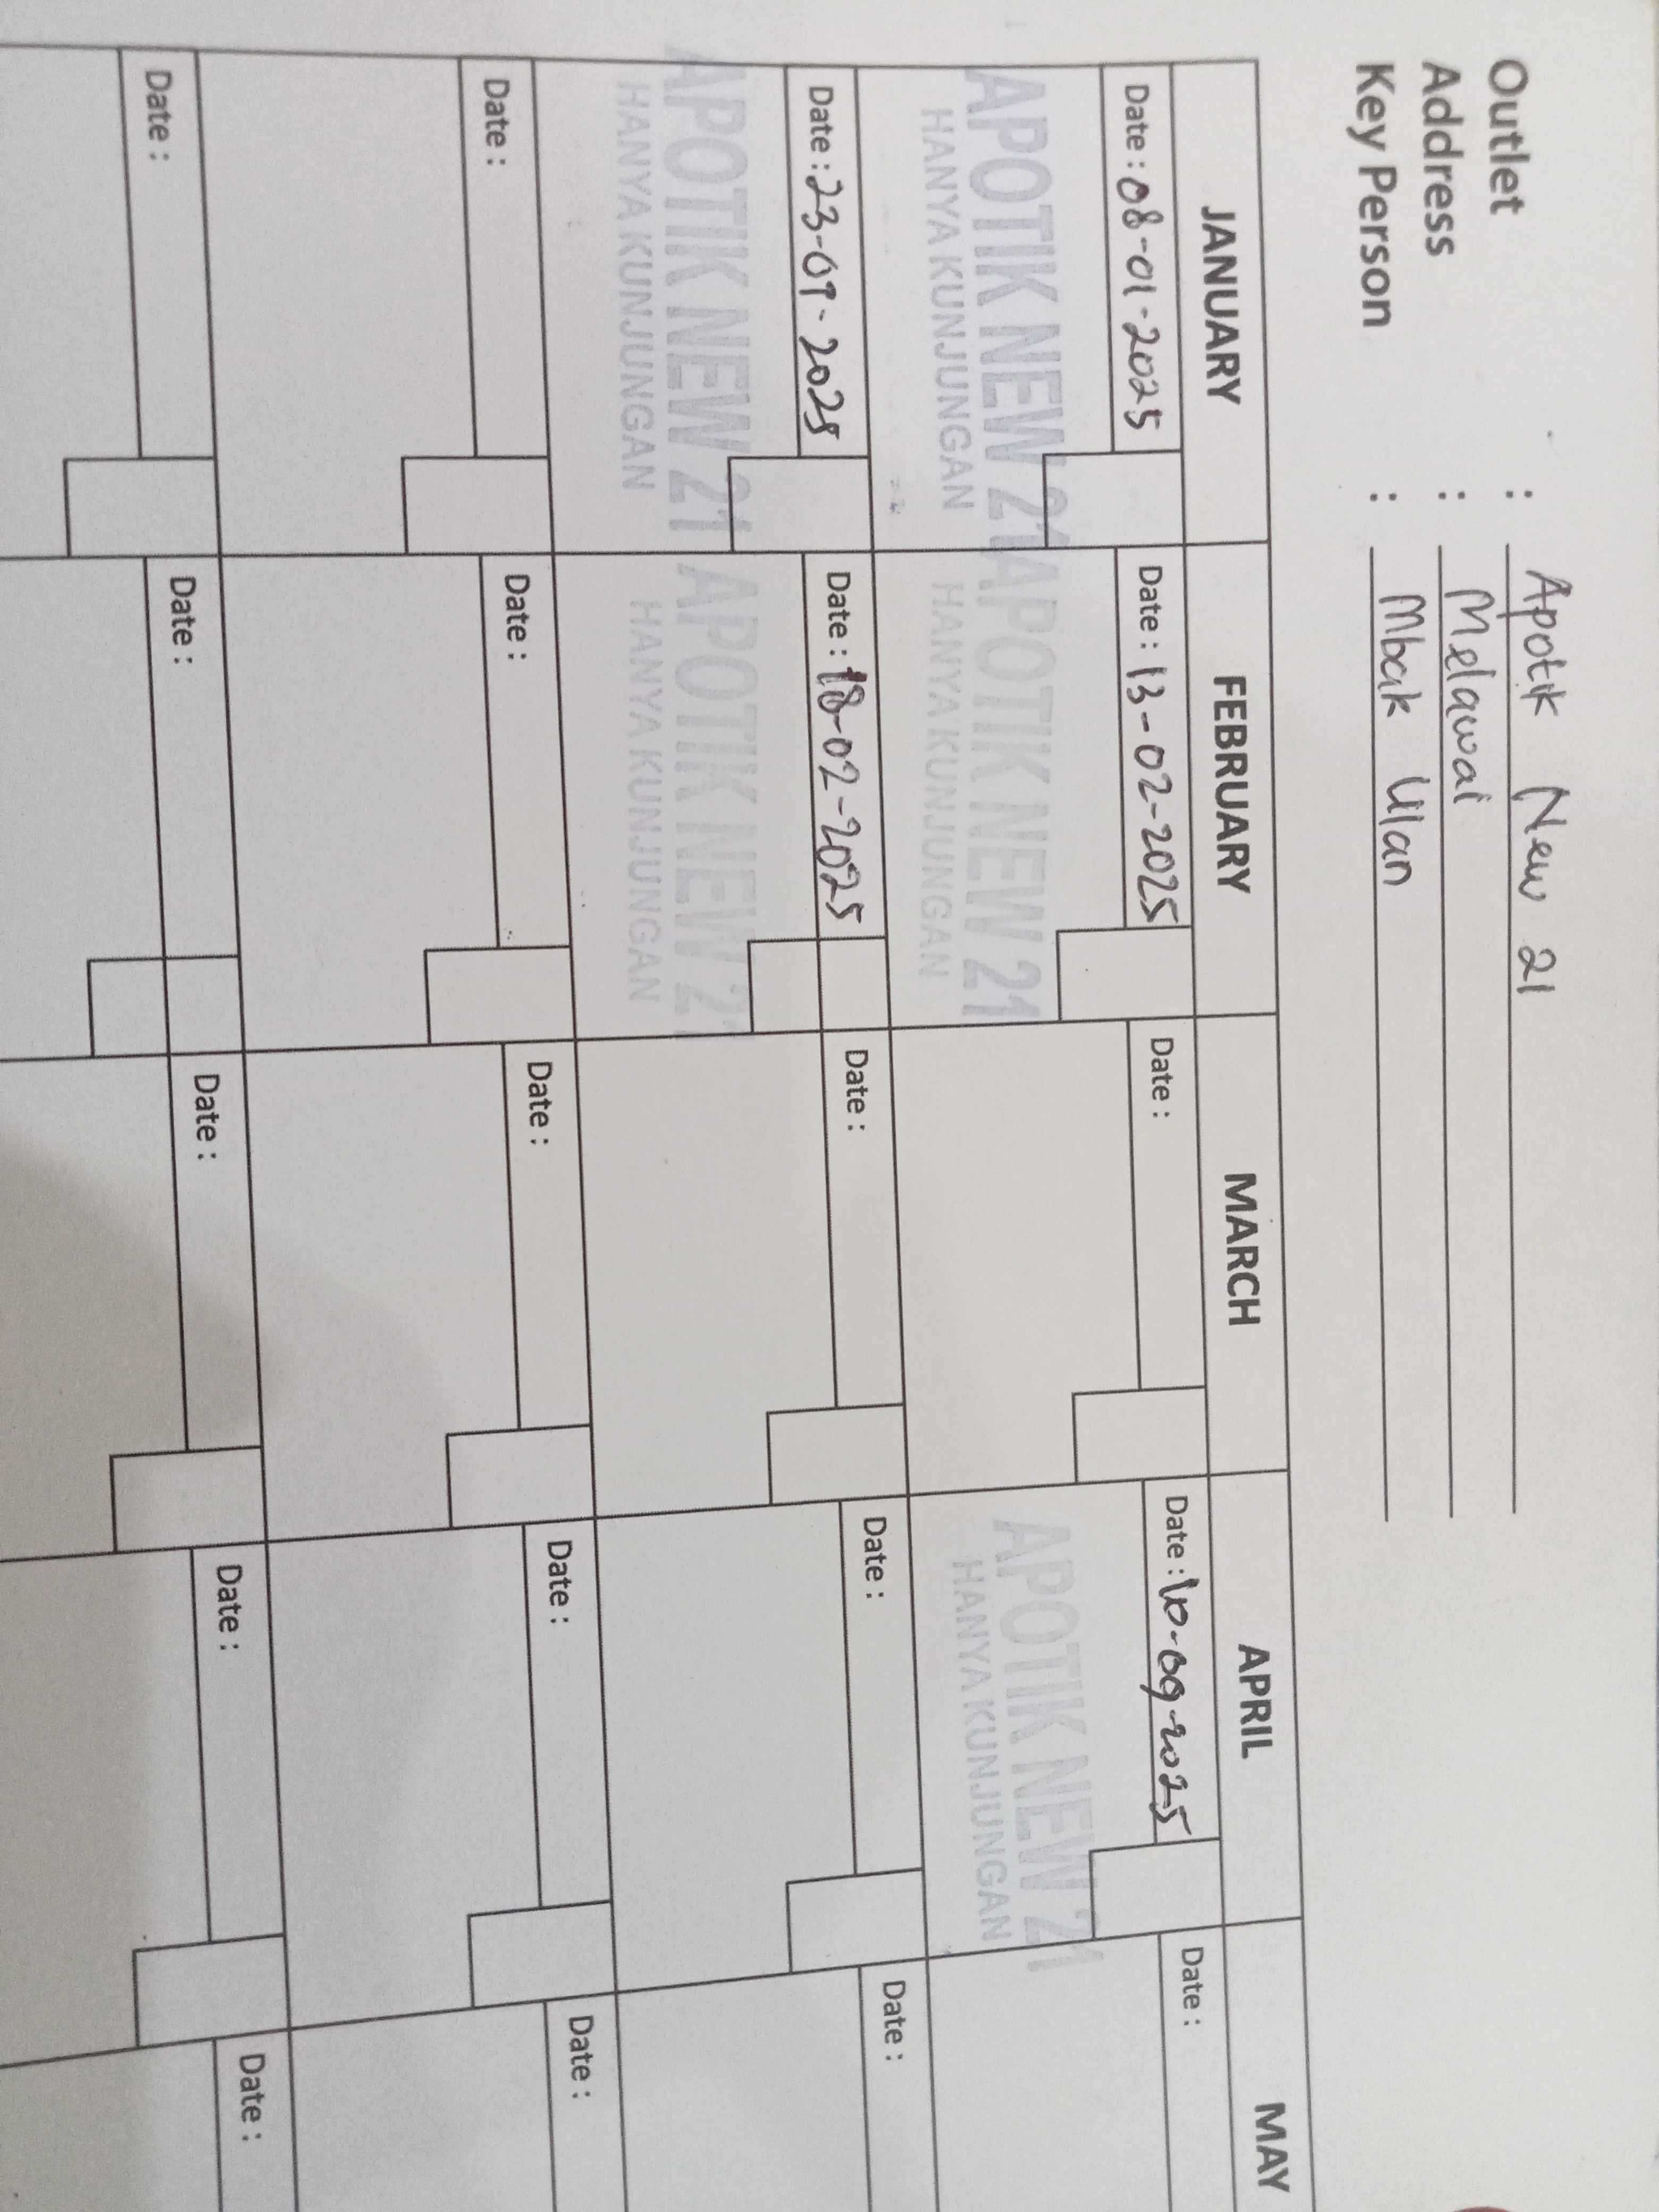 Outlet : Apotik New 21
Address : Melawai
Key Person : Mbak Ulan
JANUARY FEBRUARY MARCH APRIL MAY
Date : 08-01-2025 Date : 13-02-2025 Date : Date : 10-09-2025 Date :
APOTIK NEW 21 APOTIK NEW 21 APOTIK NEW 21
HANYA KUNJUNGAN HANYA KUNJUNGAN HANYA KUNJUNGAN
Date : 23-01-2025 Date : 18-02-2025 Date : Date : Date :
APOTIK NEW 21 APOTIK NEW 21
HANYA KUNJUNGAN HANYA KUNJUNGAN
Date : Date : Date : Date : Date :
Date : Date : Date : Date : Date :